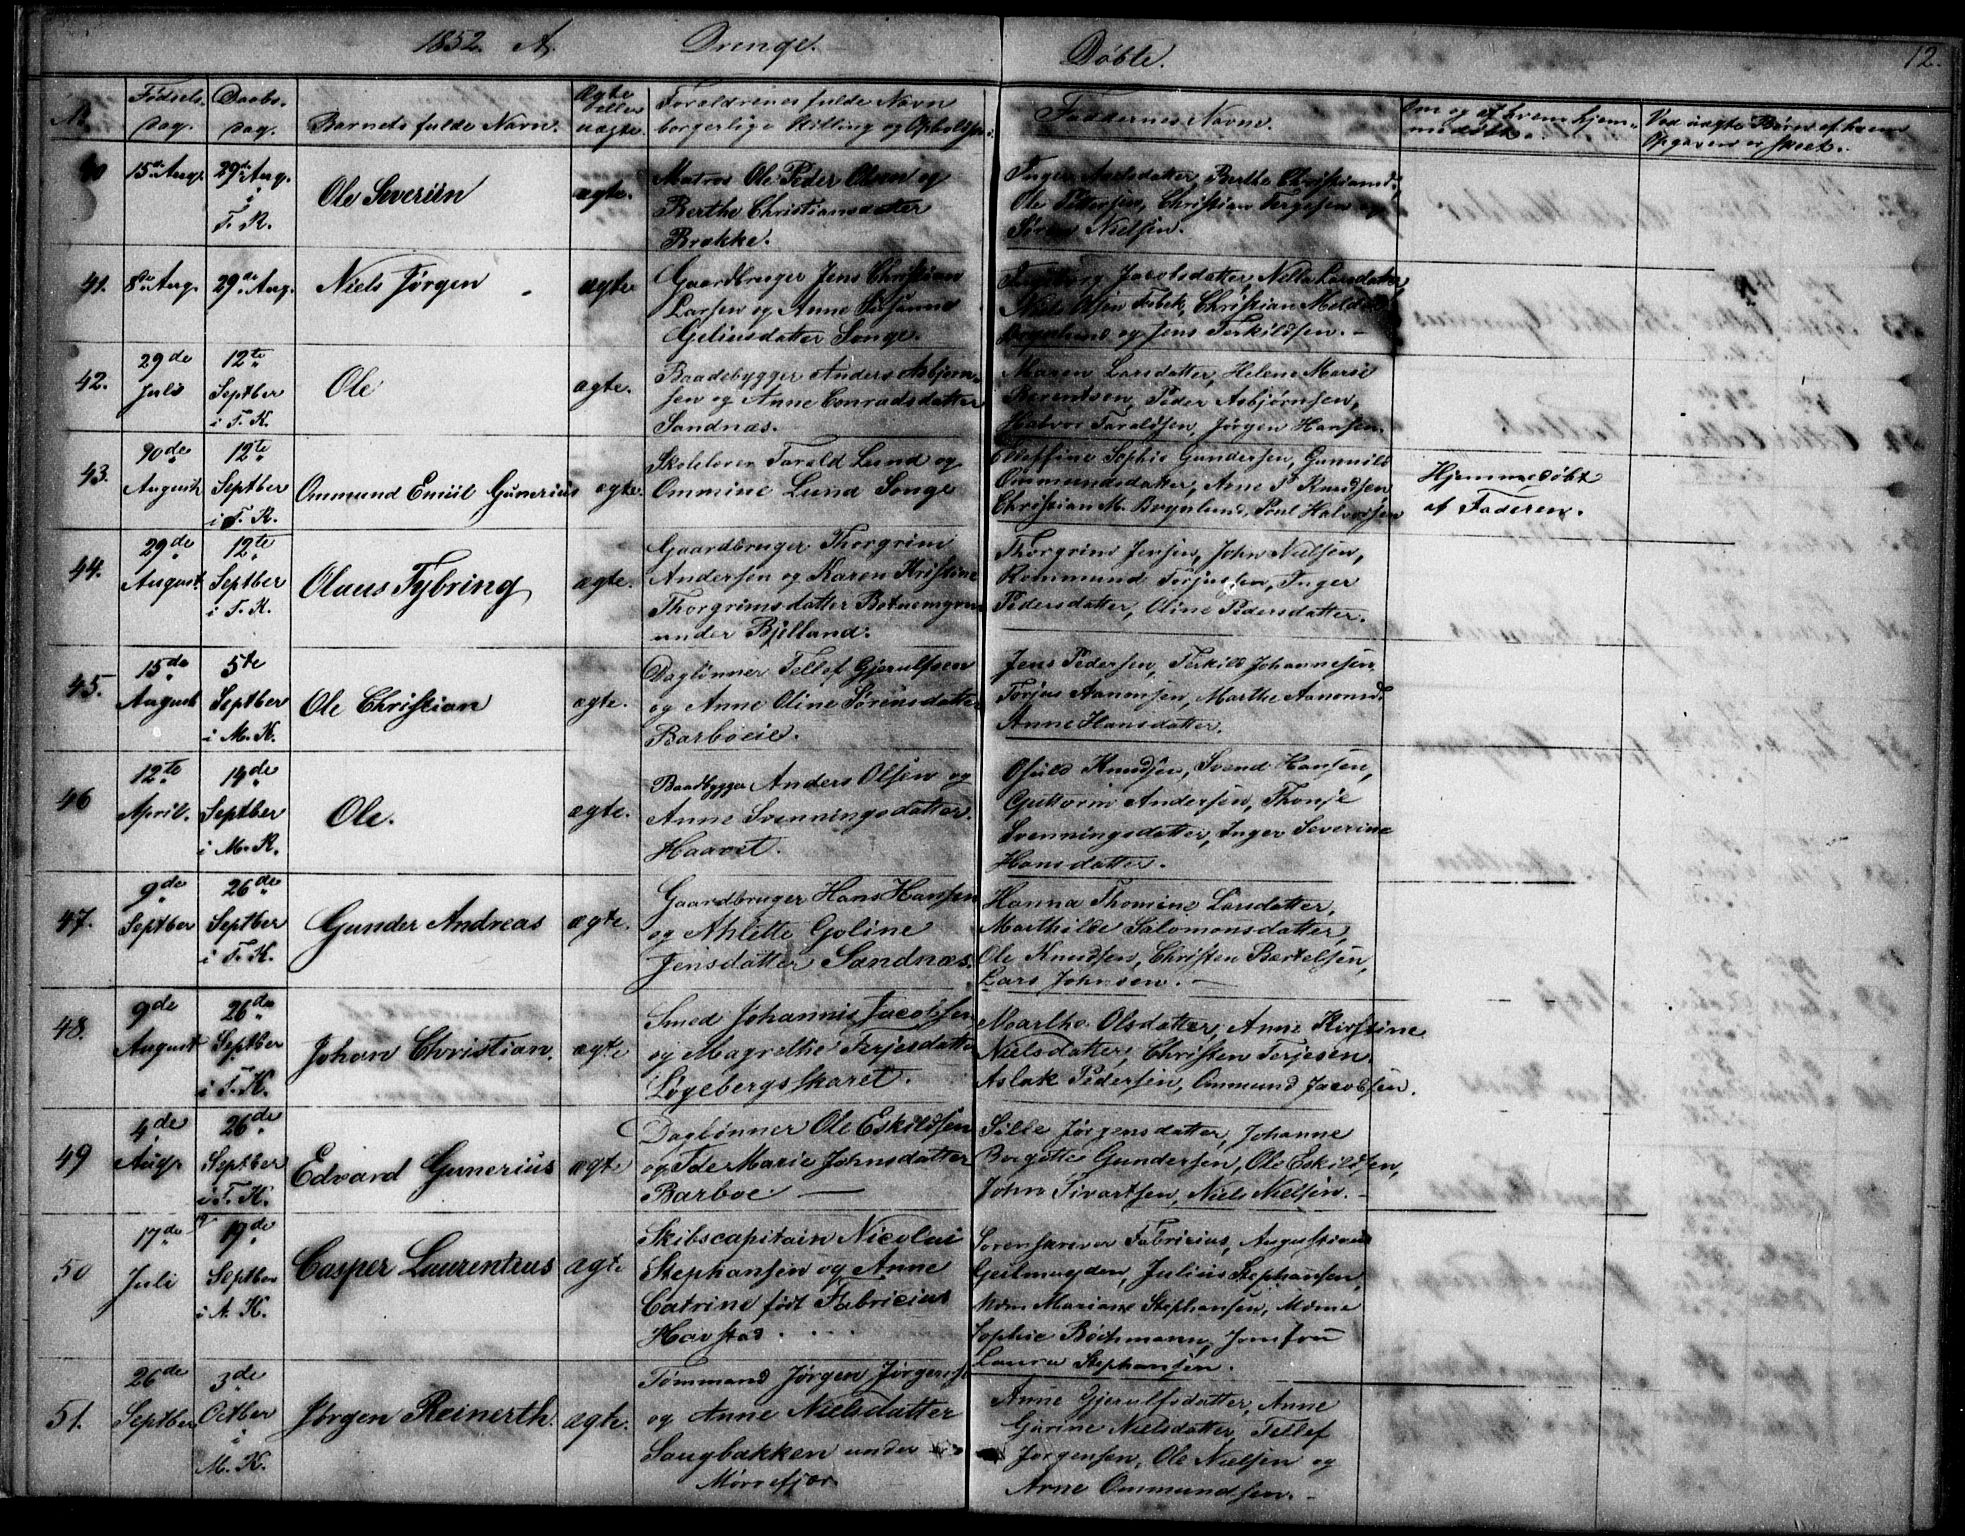 1852. A. Drenge. Døbte. 12.
No. Fødsels-Dag. Daabs-Dag. Barnets fulde Navn. Ægte eller uægte. Forældrenes fulde Navn borgerlige Stilling og Ophold Faddernes Navne. Om og af hvem hjemmedøbt. Ved uægte Børn af hvem Opgaven er skeet.
40 15de Augs. 29de Aug. i T. K. Ole Severiin ægte.
Matros Ole Peder Olsen og
Berthe Christiansdatter
Brække.
Inger Axelsdatter, Berthe Christiansd.,
Ole Pedersen, Christian Terjesen og
Søren Nielsen.
41. 8de Aug. 29de Aug. Niels Jørgen ægte
Gaardbruger Jens Christian
Larsen og Anne
Geliusdatter Songe.
Ingeborg Jacobsdatter, Nella Larsdatter,
Niels Olsen Christian
og Jens Terkildsen. -
42. 29de Juli 12te Septber i T. K. Ole ægte.
Baadebygger Anders Asbjørn-
sen og Anne Conradsdatter
Sandnæs.
Maren Larsdatter, Helene Marie
Berentsen, Peder Asbjørnsen,
Halvor Taraldsen, Jørgen Hansen.
43. 90de August 12te Septber i T. K. Ommund Emiil Gunerius ægte.
Skolelærer Tarald Lund og
Ommine Lund Songe
Sophie Gundersen, Gunnild
Ommundsdatter, Anne P. Knudsen
Christian M. Poul Halvorsen
Hjemmedøbt
af Faderen.
44. 29de August. 12te Septber i T. K. Olaus Tybring ægte.
Gaardbruger Thorgrim
Andersen og Karen Kristine
Thorgrimsdatter
under Bjelland.
Thorgrim Jensen, John Nielsen,
Rommund Terjussen, Inger
Pedersdatter, Oline Pedersdatter.
45. 15de August 5te Septber i M. K. Ole Christian ægte.
Daglønner Tellef Gjerulfsen
og Anne Oline Sørensdatter
Barboeie.
Jens Pedersen, Terkild Johannesen
Torjus Aanonsen, Marthe Aanonsd.
Anne Hansdatter.
46 12te April. 19de Septber i M. K. Ole. ægte.
Baadbygger Anders Olsen og
Anne Svenningsdatter.
Haavet.
Osuld Knudsen, Svend Hansen,
Guttorm Andersen, Thonje
Svenningsdatter, Inger Severine
Hansdatter.
47. 9de Septber 26de Septber i T. K. Gunder Andreas ægte.
Gaardbruger Hans Hansen
og Ahlette Goline
Jensdatter Sandnæs.
Hanna Thomine Larsdatter,
Marthilde Salomonsdatter,
Ole Knudsen, Christen Bertelsen,
Lars Johnsen. -
48. 9de August 26de Septber i T. K. Johan Christian. ægte
Smed Johannis Jacobsen
og Magrethe Terjesdatter
Løgebergsskaret.
Marthe Olsdatter, Anne Kirstine
Nielsdatter, Christen Terjesen
Aslak Pedersen, Ommund Jacobsen.
49 4de Augs. 26de Septber i T. K. Edvard Gunerius ægte
Daglønner Ole Eskildsen
og Ide Marie Johnsdatter
Barboe. —
Sille Jørgensdatter, Johanne
Borgette Gundersen, Ole Eskildsen,
John Sivartsen, Niels Nielsen. -
50 17de Juli 19de Septber i A. K. Casper Laurentius ægte
Skibscapitain Nicolai
Stephansen og Anne
Catrine født Fabricius
Havstad . . . .
Sorenskriver Fabricius, Augustinus
Geelmuyden, Julius Stephansen,
Mdm Mariane Stephansen, Mdme
Sophie Jomfru
Laura Stephansen.
51. 26de Septber 3de Octber i M. K. Jørgen Reinerth. ægte.
Tømmand Jørgen Jørgensen
og Anne Nielsdatter
Saugbakken under
Mørrefjær.
Anne Gjerulfsdatter, Anne
Gurine Nielsdatter, Tellef
Jørgensen, Ole Nielsen og
Arne Ommundsen. -